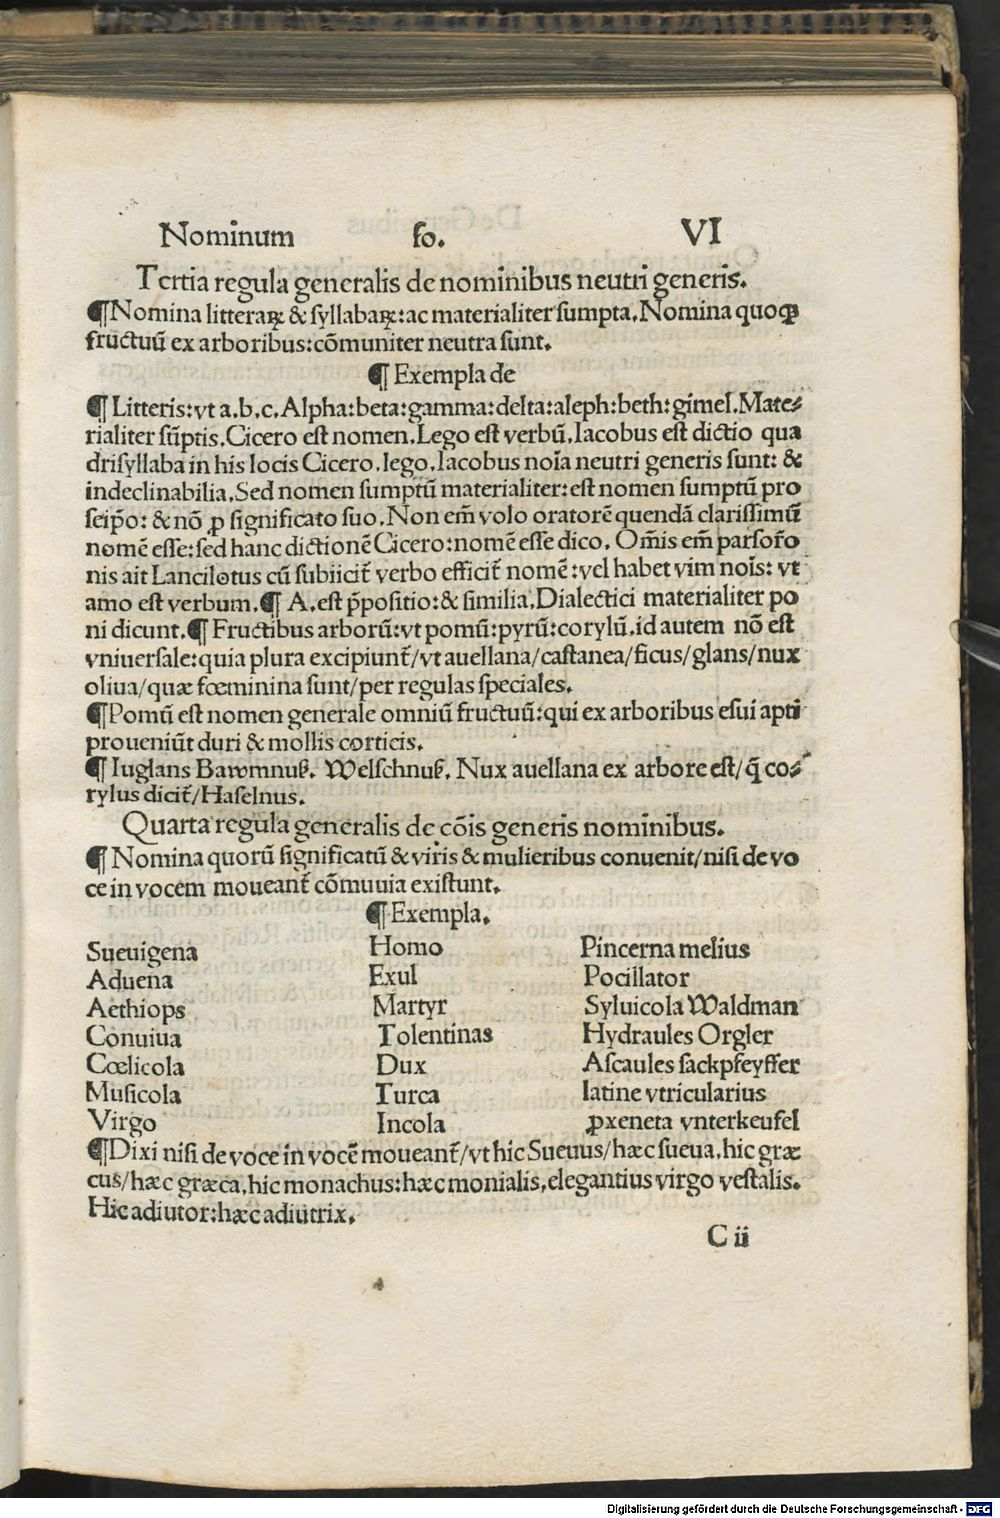 Nominum fo. VI
Tertia regula generalis de nominibus neutri generis.
¶Nomina litteraꝝ & ſyllabaꝝ:ac materialiter ſumpta.Nomina quoꝙ
fructuū ex arboribus:cōmuniter neutra ſunt.
¶ Exempla de
¶ Litteris:vt a.b.c.Alpha:beta:gamma:delta:aleph:beth:gimel.Mate⸗
rialiter ſūptis.Cicero eſt nomen.Lego eſt verbū.Iacobus eſt dictio qua
driſyllaba in his locis Cicero.lego.Iacobus noīa neutri generis ſunt: &
indeclinabilia.Sed nomen ſumptū materialiter:eſt nomen ſumptū pro
ſeip̄o: & nō ꝓ ſignificato ſuo.Non em̄ volo oratorē quendā clariſſimū
nomē eſſe:ſed hanc dictionē Cicero:nomē eſſe dico. Om̄is em̄ parſor̄o
nis ait Lancilotus cū ſubiicit̄ verbo efficit̄ nomē:vel habet vim nois̄: vt
amo eſt verbum.¶ A.eſt p̄poſitio:& ſimilia.Dialectici materialiter po
ni dicunt.¶ Fructibus arborū:vt pomū:pyrū:corylū.id autem nō eſt
vniuerſale:quia plura excipiunt̄/vt auellana/caſtanea/ficus/glans/nux
oliua/quæ fœminina ſunt/per regulas ſpeciales.
¶Pomū eſt nomen generale omniū fructuū:qui ex arboribus eſui apti
proueniūt duri & mollis corticis.
¶ Iuglans Bawmnuß. Welſchnuß. Nux auellana ex arbore eſt/q̄ co⸗
rylus dicit̄/Haſelnus.
Quarta regula generalis de cōis generis nominibus.
¶ Nomina quorū ſignificatū & viris & mulieribus conuenit/niſi de vo
ce in vocem moueant̄ cōmuuia exiſtunt.
¶ Exempla.
Sueuigena Homo Pincerna melius
Aduena Exul Pocillator
Aethiops Martyr Syluicola Waldman
Conuiua Tolentinas Hydraules Orgler
Cœlicola Dux Aſcaules ſackpfeyffer
Muſicola Turca latine vtricularius
Virgo Incola ꝓxeneta vnterkeufel
¶Dixi niſi de voce in vocē moueant̄/vt hic Sueuus/hæc ſueua.hic græ
cus/hæc græca.hic monachus:hæc monialis.elegantius virgo veſtalis.
Hic adiutor:hæc adiutrix.
C ii
Digitalisierung gefördert durch die Deutsche Forschungsgemeinschaft - DFG